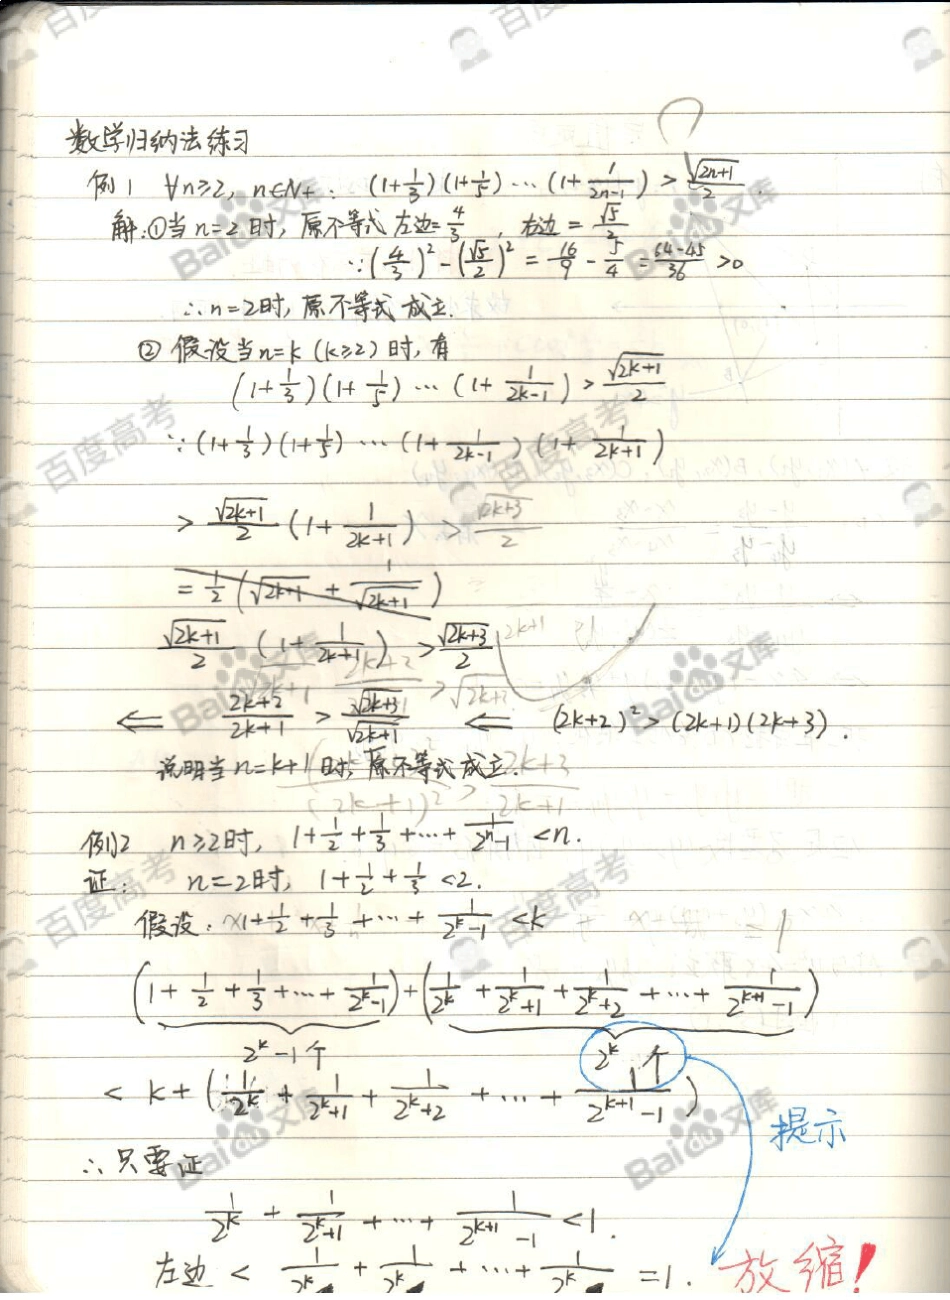 数学归纳法练习
例1 ∀n≥2, n∈N+: (1+1/3)(1+1/5)…(1+1/(2n-1)) > √(2n+1)/2.
解:①当n=2时,原不等式左边=4/3,右边=√5/2
∵(4/3)²-(√5/2)²=16/9-5/4=(64-45)/36>0
∴n=2时,原不等式成立.
②假设当n=k(k≥2)时,有
(1+1/3)(1+1/5)…(1+1/(2k-1))>√(2k+1)/2
∵(1+1/3)(1+1/5)…(1+1/(2k-1))(1+1/(2k+1))
>√(2k+1)/2(1+1/(2k+1))>√(2k+3)/2
=1/2(√(2k+1)+1/√(2k+1))
√(2k+1)/2(1+1/(2k+1))>√(2k+3)/2
⇐ (2k+2)/(2k+1)>√(2k+3)/√(2k+1) ⇐ (2k+2)²>(2k+1)(2k+3).
说明当n=k+1时,原不等式成立.
例2 n≥2时, 1+1/2+1/3+…+1/(2ⁿ-1)<n.
证: n=2时, 1+1/2+1/3<2.
假设: 1+1/2+1/3+…+1/(2ᵏ-1)<k
(1+1/2+1/3+…+1/(2ᵏ-1))+(1/2ᵏ+1/(2ᵏ+1)+1/(2ᵏ+2)+…+1/(2ᵏ⁺¹-1))
2ᵏ-1个 2ᵏ个
<k+(1/2ᵏ+1/(2ᵏ+1)+1/(2ᵏ+2)+…+1/(2ᵏ⁺¹-1))
提示
∴只要证
1/2ᵏ+1/(2ᵏ+1)+…+1/(2ᵏ⁺¹-1)<1.
左边<1/2ᵏ+1/2ᵏ+…+1/2ᵏ=1. 放缩!
百度高考
Baidu文库